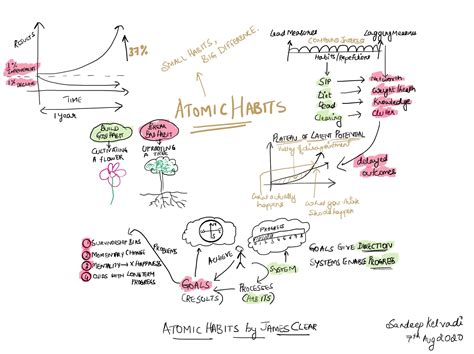 RESULTS
37%
1% IMPROVEMENT
1% DECLINE
TIME
1 year
SMALL HABITS,
BIG DIFFERENCE.
ATOMIC HABITS
Lead Measures
Lagging Measures
COMPOUND INTEREST
Habits/Repetitions
SIP
Networth
Diet
Weight/Health
Read
Knowledge
Cleaning
Clutter
BUILD
GOOD HABIT
BREAK
BAD HABIT
CULTIVATING
A FLOWER
UPROOTING
A TREE
PLATEAU OF LATENT POTENTIAL
Valley of disappointment
delayed
outcomes
What actually
happens
What you think
should happen
PROGRESS
ACHIEVE
PROBLEMS
1 SURVIVORSHIP BIAS
2 MOMENTARY CHANGE
3 MENTALITY → X HAPPINESS
4 ODDS WITH LONGTERM
PROGRESS
GOALS
(RESULTS)
PROCESSES
(HABITS)
SYSTEM
GOALS GIVE DIRECTION
SYSTEMS ENABLE PROGRESS
ATOMIC HABITS by JAMES CLEAR
Sandeep Kelvadi
7th Aug 2020